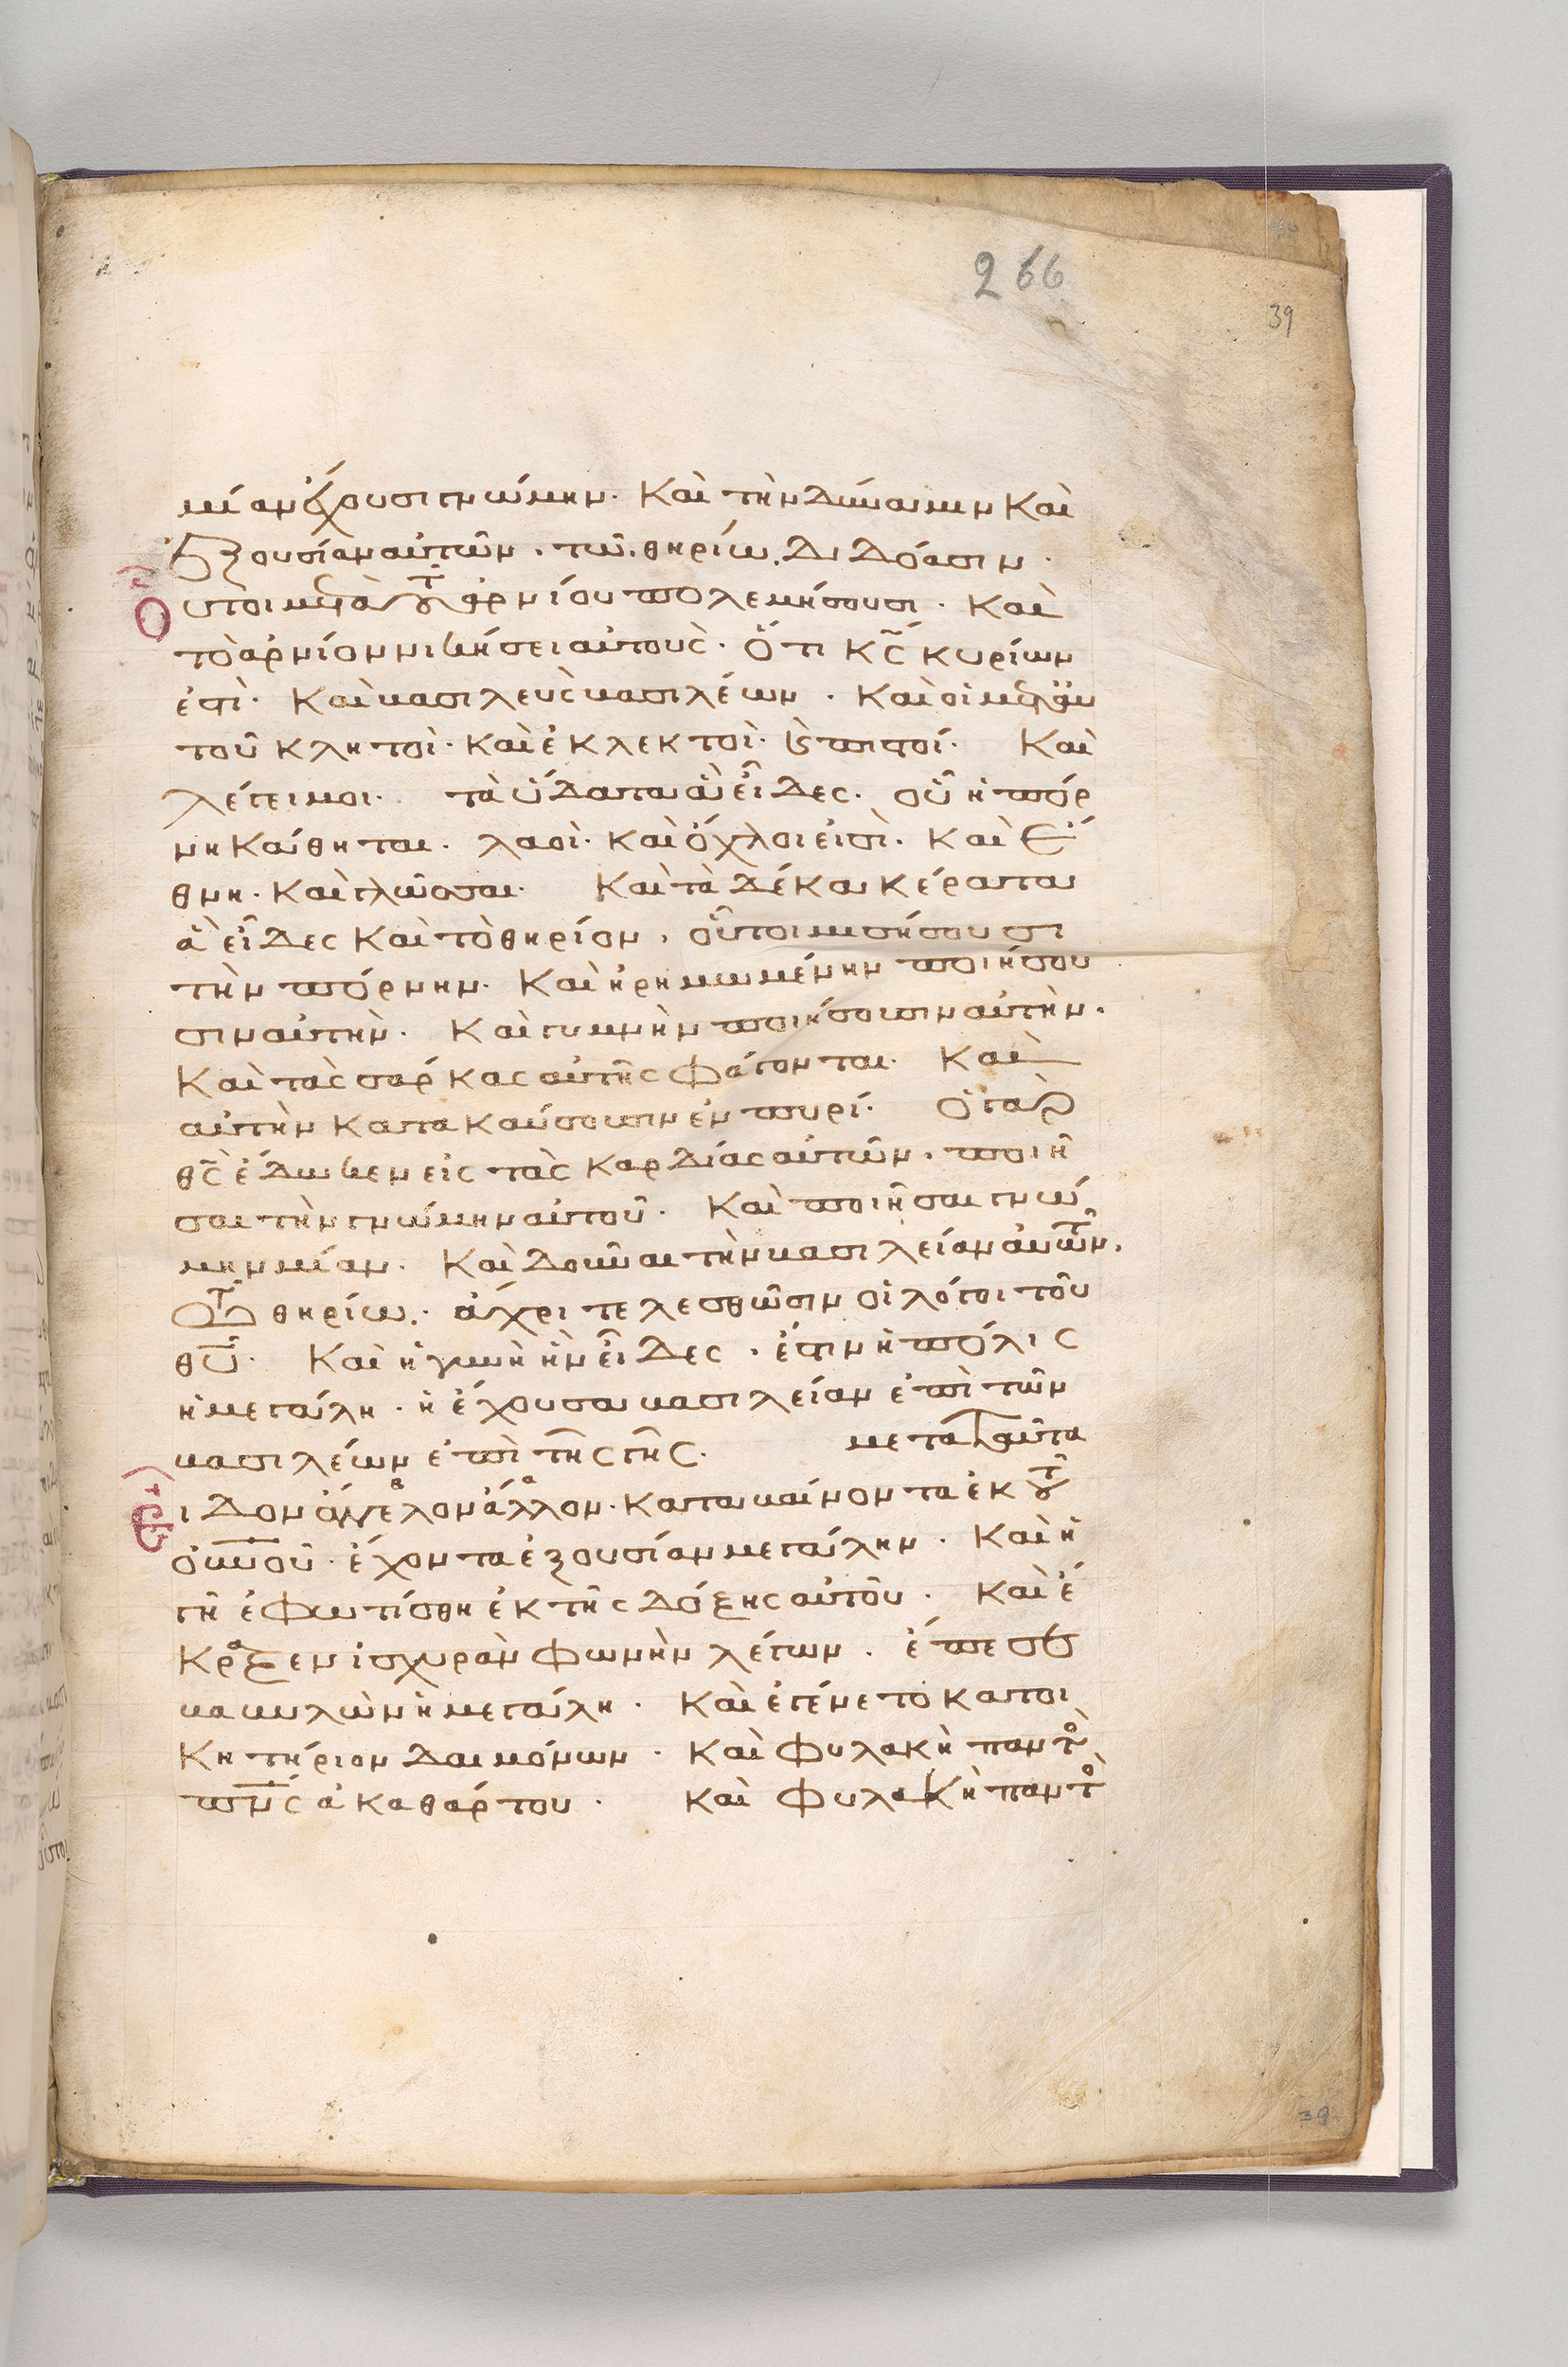 266
39
μίαν ἔχουσι γνώμην· Καὶ τὴν δύναμιν Καὶ
ἐξουσίαν αὐτῶν, τῶ θηρίω διδόασιν·
Οὗτοι μετὰ τοῦ ἀρνίου πολεμήσουσι· Καὶ
τὸ ἀρνίον νικήσει αὐτοὺς· ὅτι κς κυρίων
ἐστὶ· Καὶ βασιλεὺς βασιλέων· Καὶ οἱ μετ αὐ
τοῦ κλητοὶ· καὶ ἐκλεκτοὶ· καὶ πιστοί· Καὶ
λέγει μοι· τὰ ὕδατα ἃ εἶδες· οὗ ἡ πόρ
νη κάθηται· λαοὶ· καὶ ὄχλοι εἰσὶ· καὶ ἔ
θνη· καὶ γλῶσσαι· Καὶ τὰ δέκα κέρατα
ἃ εἶδες καὶ τὸ θηρίον, οὗτοι μισήσουσι
τὴν πόρνην· Καὶ ἠρημωμένην ποιήσου
σιν αὐτὴν· Καὶ γυμνὴν ποιήσουσιν αὐτὴν·
Καὶ τὰς σάρκας αὐτῆς φάγονται· Καὶ
αὐτὴν κατακαύσουσιν ἐν πυρί· Ὁ γὰρ
θς ἔδωκεν εἰς τὰς καρδίας αὐτῶν, ποιῆ
σαι τὴν γνώμην αὐτοῦ· Καὶ ποιῆσαι γνώ
μην μίαν· Καὶ δοῦναι τὴν βασιλείαν αὐτῶν,
τῶ θηρίω· ἄχρι τελεσθῶσιν οἱ λόγοι τοῦ
θυ· Καὶ ἡ γυνὴ ἣν εἶδες, ἔστιν ἡ πόλις
ἡ μεγάλη· ἡ ἔχουσα βασιλείαν ἐπὶ τῶν
βασιλέων ἐπὶ τῆς γῆς· μετὰ ταῦτα
εἶδον ἄγγελον ἄλλον· καταβαίνοντα ἐκ τοῦ
οὐνοῦ· ἔχοντα ἐξουσίαν μεγάλην· Καὶ ἡ
γῆ ἐφωτίσθη ἐκ τῆς δόξης αὐτοῦ· Καὶ ἔ
κραξεν ἰσχυρὰν φωνὴν λέγων· ἔπεσε
βαβυλὼν ἡ μεγάλη· Καὶ ἐγένετο κατοι
κητήριον δαιμόνων· Καὶ φυλακὴ παντὸς
πνς ἀκαθάρτου· Καὶ φυλακὴ παντὸς
39